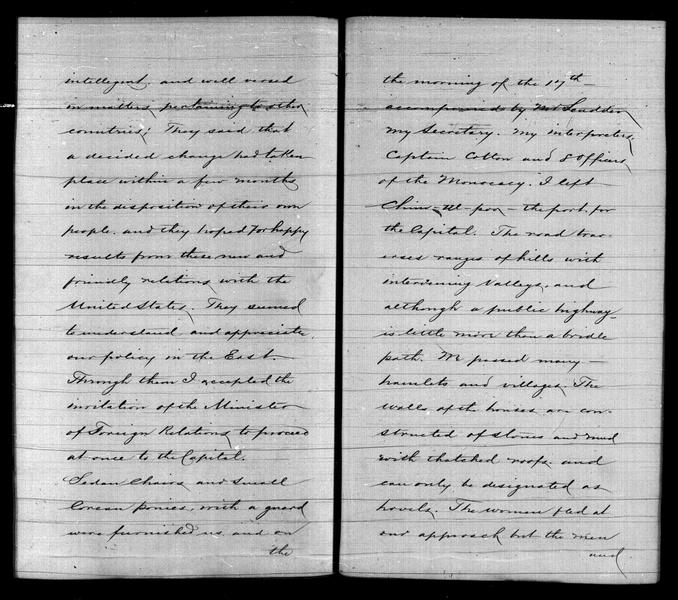 intelligent and well versed
on matters pertaining to other
countries. They said that
a decided change had taken
place within a few months
in the disposition of their own
people, and they hoped for happy
results from these new and
friendly relations with the
United States. They seemed
to understand and appreciate
our policy in the East.
Through them I accepted the
invitation of the Minister
of Foreign Relations, to proceed
at once to the Capital.
Sedan Chairs and small
Corean ponies, with a guard
were furnished us, and on
the
the morning of the 17th
accompanied by Mr Scudder,
my Secretary. My interpreters,
Captain Cotton and 8 Officers
of the Monocacy. I left
the port for
the Capital. The road trav-
erses ranges of hills with
intervening Valleys, and
although a public highway
is little more than a bridle
path. We passed many
hamlets and villages. The
walls of the houses are con-
structed of stones and mud
with thatched roofs, and
can only be designated as
hovels. The women fled at
our approach but the men
and